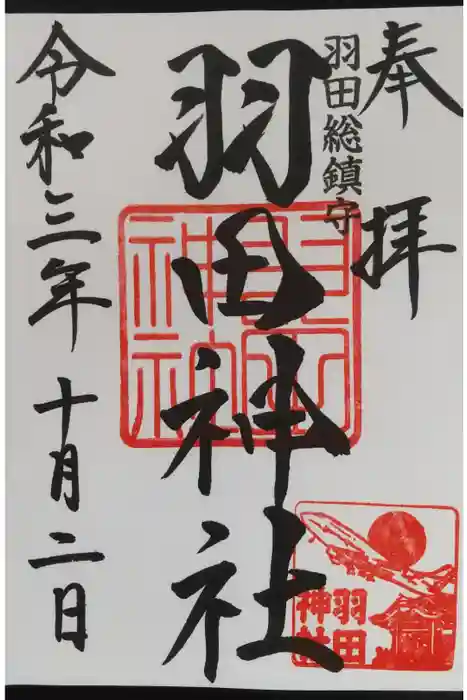 奉拝
羽田総鎮守
羽田神社
令和三年十月二日
羽田神社
羽田
神社